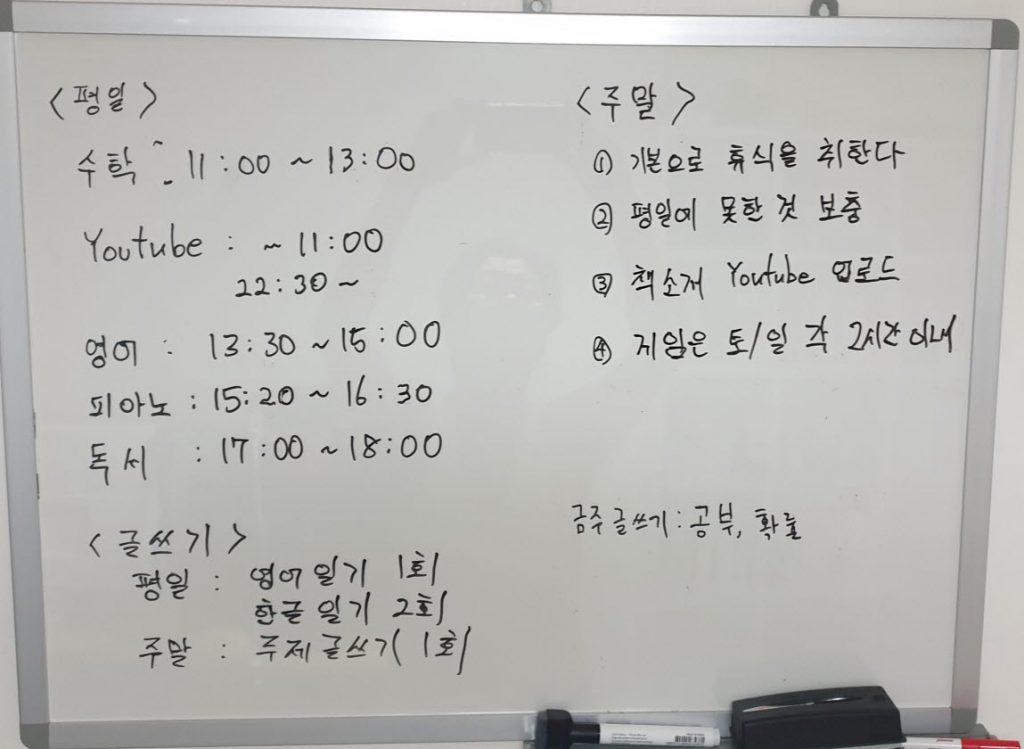 <평일>
수학 : 11:00 ~ 13:00
Youtube : ~ 11:00
22:30 ~
영어 : 13:30 ~ 15:00
피아노 : 15:20 ~ 16:30
독서 : 17:00 ~ 18:00
<글쓰기>
평일 : 영어일기 1회
한글일기 2회
주말 : 주제글쓰기 1회
<주말>
① 기본으로 휴식을 취한다
② 평일에 못한 것 보충
③ 책소개 Youtube 업로드
④ 게임은 토/일 각 2시간 이내
금주 글쓰기 : 공부, 확률